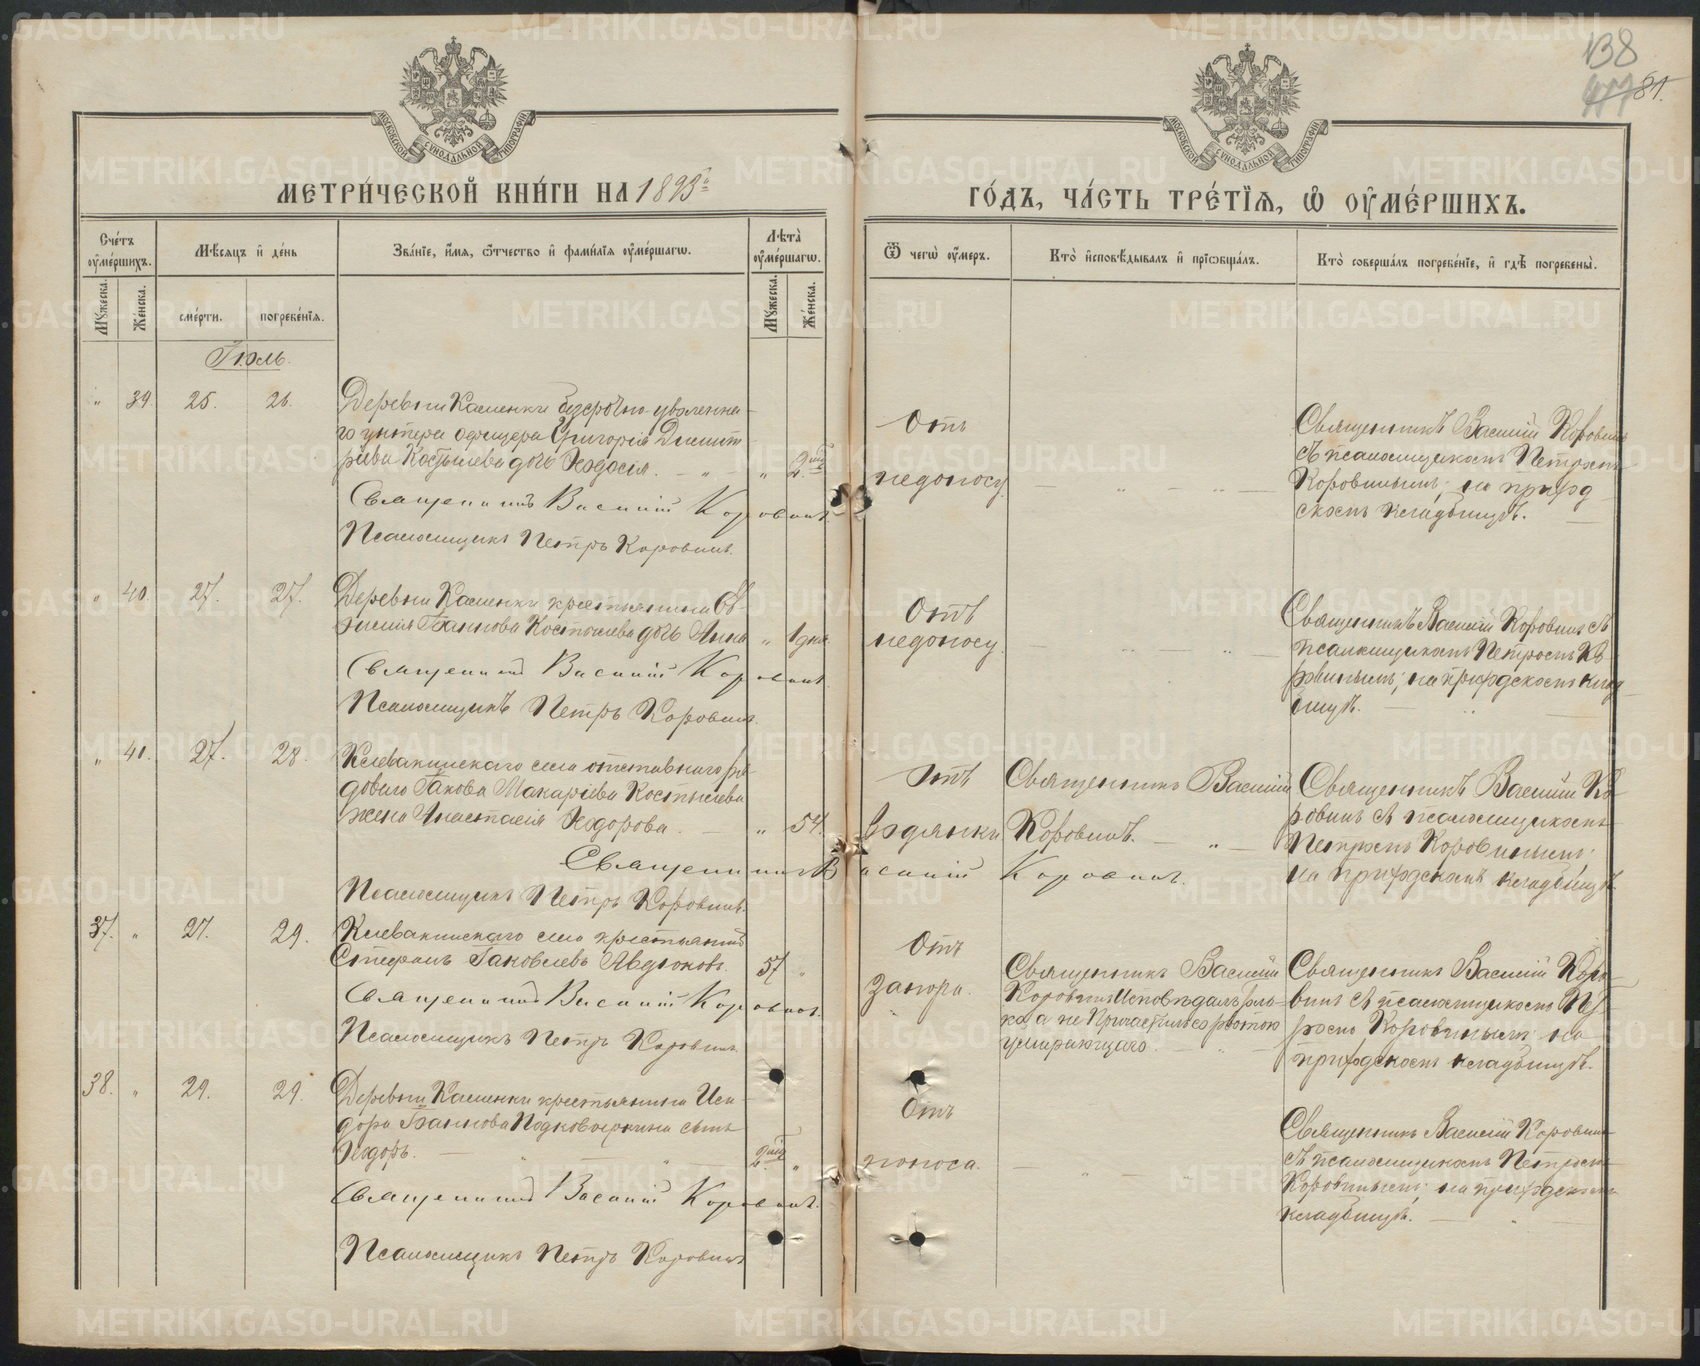 138
417 81.
МОСКОВСКОЙ СѴНОДАЛЬНОЙ ТИПОГРАФІИ
МОСКОВСКОЙ СѴНОДАЛЬНОЙ ТИПОГРАФІИ
МЕТРИ́ЧЕСКОЙ КНИ́ГИ НА 1893й
ГО́ДЪ, ЧА́СТЬ ТРЕ́ТІЯ, Ѡ҆ ОУ҆МЕ́РШИХЪ.
Сче́тъ оу҆ме́ршихъ.
Мꙋ́жеска.
Же́нска.
Мѣ́сяцъ и҆ де́нь
сме́рти.
погребе́нїя.
Зва́нїе, и҆́мя, ѻ҆́тчество и҆ фами́лїя оу҆ме́ршагѡ.
Лѣта̀ оу҆ме́ршагѡ.
Мꙋ́жеска.
Же́нска.
Ѿ чегѡ̀ оу҆́меръ.
Кто̀ и҆сповѣ́дывалъ и҆ прїѡбща́лъ.
Кто̀ соверша́лъ погребе́нїе, и҆ гдѣ̀ погребены̀.
Іюль.
" 39. 25. 26.
Деревни Каменки безсрочно уволенна-
го унтеръ офицера Григорія Димит-
ріева Костылева дочь Ѳеодосія. — " — " 2
Священникъ Василій Коровинъ.
Псаломщикъ Петръ Коровинъ.
Отъ
недоносу.
Священникъ Василій Коровинъ
съ псаломщикомъ Петромъ
Коровинымъ; на приход
скомъ кладбищѣ. —
" 40. 27. 27.
Деревни Каменки крестьянина Ев-
ѳимія Іаннова Костылева дочь Анна " 1 дня
Священникъ Василій Коровинъ
Псаломщикъ Петръ Коровинъ.
Отъ
недоносу.
Священникъ Василій Коровинъ съ
псаломщикомъ Петромъ Ко-
ровинымъ; на приходскомъ клад-
бищѣ. —
" 41. 27. 28.
Клевакинскаго села отставного ря-
дового Іакова Макаріева Костылева
жена Анастасія Ѳеодорова. — " 54.
Священникъ Василій Коровинъ.
Псаломщикъ Петръ Коровинъ.
Отъ
водянки
Священникъ Василій
Коровинъ. — " —
Священникъ Василій Ко-
ровинъ съ псаломщикомъ
Петромъ Коровинымъ;
на приходскомъ кладбищѣ.
37. " 27. 29.
Клевакинскаго села крестьянинъ
Стефанъ Іаковлевъ Авдюковъ. 57 "
Священникъ Василій Коровинъ.
Псаломщикъ Петръ Коровинъ.
Отъ
запора.
Священникъ Василій
Коровинъ Исповѣдалъ толь-
ко, а не Причастилъ со рвотою
умирающаго. —
Священникъ Василій Коро-
винъ съ псаломщикомъ Пе-
тромъ Коровинымъ; на
приходскомъ кладбищѣ.
38. " 29. 29.
Деревни Каменки крестьянина Иси-
дора Іаннова Подковыркина сынъ
Ѳеодоръ. — " — " 2 "
Священникъ Василій Коровинъ.
Псаломщикъ Петръ Коровинъ
Отъ
поноса.
Священникъ Василій Коровинъ
съ псаломщикомъ Петромъ
Коровинымъ; на приходскомъ
кладбищѣ. —
METRIKI.GASO-URAL.RU